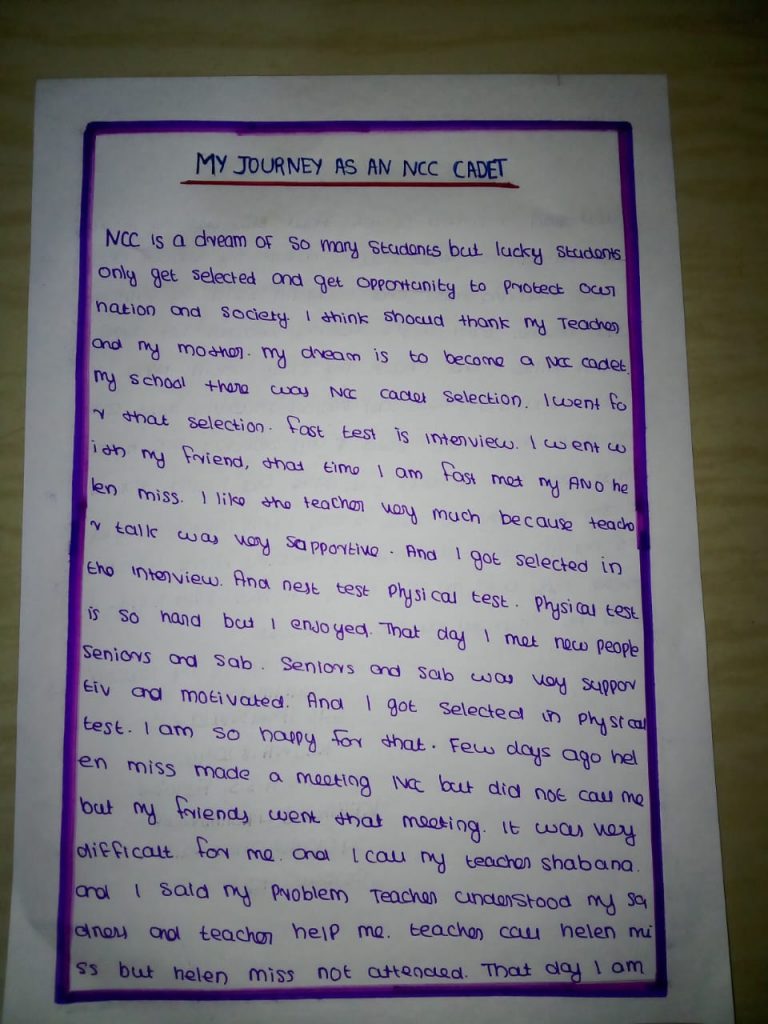 MY JOURNEY AS AN NCC CADET
NCC is a dream of so many students but lucky students
only get selected and get opportunity to protect our
nation and society I think should thank my Teacher
and my mother. my dream is to become a NCC cadet.
my school there was NCC cadet selection. I went fo
r that selection. fast test is interview. I went w
ith my friend, that time I am fast met my ANO he
len miss. I like the teacher very much because teache
r talk was very sapportive. And I got selected in
the interview. And nest test physical test. physical test
is so hard but I enjoyed. That day I met new people
seniors and sab. seniors and sab was very suppor
tiv and motivated. And I got selected in physical
test. I am so happy for that. Few days ago hel
en miss made a meeting NCC but did not call me
but my friends went that meeting. It was very
difficalt for me. and I call my teacher shabana.
and I said my problem Teacher understood my sa
dness and teacher help me. teacher call helen mi
ss but helen miss not attended. That day I am